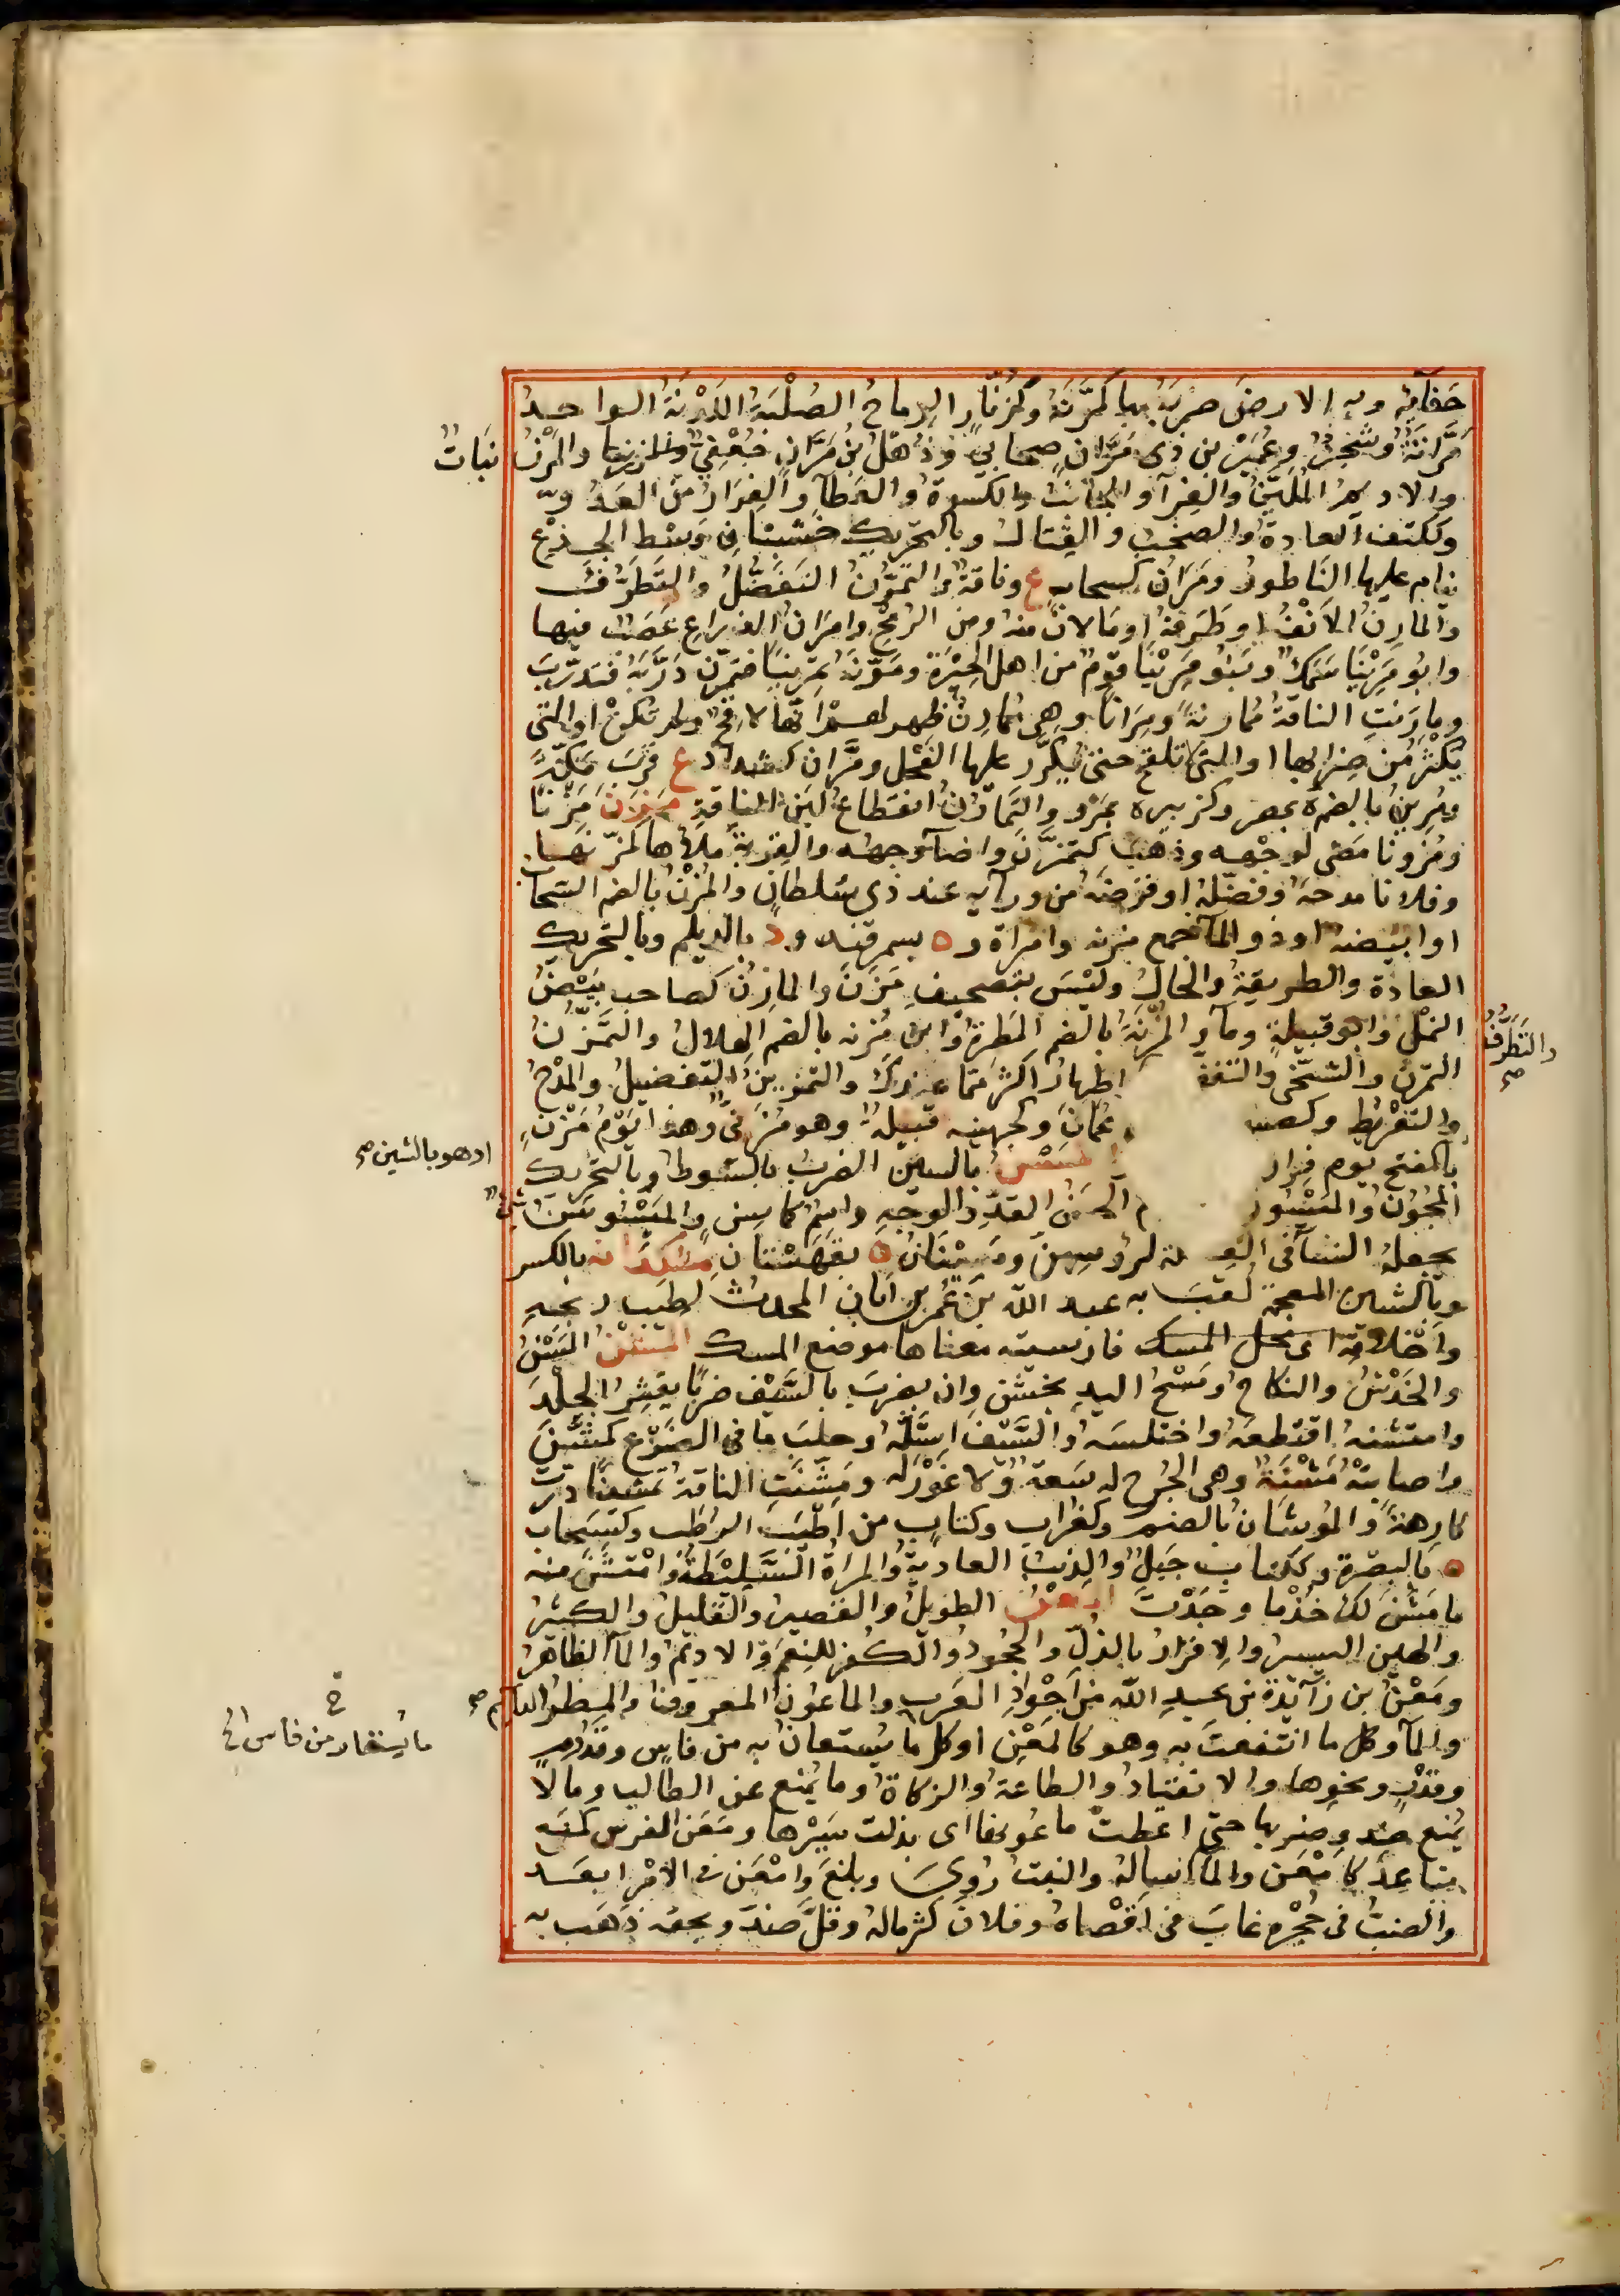 حفائه وبه الارض ضربه بها كمرّنه وكزنّار الرماح الصُلْبَةُ اللَدْنَةُ الواحدة
مُرَّانَةٌ وشجرٌ وعُمَيْرُ بن ذى مَرَّانٍ صحابىّ وذُهْلُ بنُ مَرَّانٍ جُعْفِىٌّ والمَرْنُ نباتٌ
والاديمُ المُلَيَّنُ والفِرَآءُ والجانبُ والكسوةُ والعطآء والفِرَارُ من العدوّ
وككتف العادةُ والصخبُ والقِتالُ وبالتحريك خشبتان فى وَسْط الجِذْعِ
ينام عليها الناطورُ ومَرَانٌ كسحابٍ ع وناقةٌ والتمرّنُ التفضّلُ والتطرّفُ
والمارِنُ الاَنْفُ او طَرَفهُ او مالان منه ومن الرُمْحِ وامْرَانُ الذراع عَصَبٌ فيها
وابُو مَرِيْنَا سَمَكٌ وبَنُو مَرِيْنَا قومٌ من اهل الحِيْرَةِ ومَرّنَهُ تمرينًا فتمرّن دَرَّبَهُ فتدرّبَ
ومارَنَتِ الناقةُ مُمَارنةً ومِرَانًا وهى مُمَارِنٌ ظهر لهم انّها لاقِحٌ ولم تكنْ او التى
يُكْثَرُ من ضِرابها او التى لا تلقح حتى يُكَرَّر عليها الفحل ومَرَّان كشدّاد ع قربَ مَكّةَ
ومُرينُ بالضم ة بمصر وكزبير ة بمَرْو والتَمَارُنُ انقطاعُ لبَنِ الناقةِ مَزَنَ مَزْنًا
ومُزُونًا مضى لوجْهه وذهَبَ كتَمَزّنَ واضآء وجهه والقِرْبةَ ملأها كمَزّنها
وفلانا مدحَهُ وفضّلهُ او قرّضهُ من ورآيه عند ذى سُلطانٍ والمُزْنُ بالضم السَحَابُ
او ابيضهُ او ذو المآء جمع مزنه وامراة و ة بسمرقند و د بالديلم وبالتحريك
العادة والطريقةُ والحالُ وليْسَ بتصحيفِ مَرَنَ والمازِنُ كصاحبٍ بَيْضُ
النمْلِ وابو قبيلةٍ ومآءٌ والمُزْنَةُ بالضم المَطرةُ وابنُ مُزنه بالضم الهلالُ والتَمَزُّنُ
التمرّنُ والتسخّى والتفضّـ اظهارُ اكثرَ ممّا عندكَ والتمزينُ التفضيلُ والمَدْحُ
والتقْريظ وكصبـ عُمَانَ وكجهينه قبيلةٌ وهو مُزَنىٌّ وهذا يَوْمُ مَزْنٍ
بالفتح يوم فِرار المَسْنُ بالسين الضربُ بالسَوطِ وبالتحريك
المُجُونُ والمَيْسُون الحَسَنُ القَدِّ والوَجْهِ واسْمٌ كاسنٍ والمَيْسُوسَنُ شىءٌ
يجعلُهُ النسآءُ فى الغِـ ـة لرؤسهنّ ومَسِيْنَانُ ة بقُهِسْتانِ مُسْكَدَانه بالكسر
وبالشين المعجمة لُقبَ به عبد الله بنُ عُمَر بن اَبَان المحدثُ لطيب ريحه
واخْلاقه اى محل المسك فارسيته معناها موضع المسك المَشْنُ
والخَدْشُ والنكاحُ ومَسْحُ اليدِ بخشنٍ وان يضربَ بالسَيْف ضربًا يقشِرُ الجلْدَ
وامتشنه اقتطعَهُ واختلسَه والسَيْفَ استَلّهُ وحلبَ ما فى الضَرْعِ كمَشّنَ
واصابتْهُ مَشْنَةٌ وهى الجُرحُ له سَعَةٌ ولا غَوْرَله ومَشّنَتِ الناقةُ تمشينًا درّت
كارِهةً والمُوشَانُ بالضم وكغُرابٍ وكتابٍ من اَطْيَبِ الرُطَبِ وكسَحابٍ
ة بالبَصْرةِ وككتابٍ جَبَلٌ والذِئبُ العاديةُ والمرأةُ السَلِيْطَةُ وامْتَشِنْ منه
ما مَشَنَ لكَ خُذْ ما وجَدْتَ المَعْنُ الطويلُ والقصيرُ والقليلُ والكثيرُ
والهين اليسيرُ والاقرارُ بالذُلِّ والجُحودُ والكُفرُ للنِعَمِ والاديمُ والمآءُ الظاهرُ
ومَعْنُ بن زآئدةَ بنِ عبد الله من اَجْوادِ العَربِ والماعُونُ المعروفُ والمطرُ
والمآء وكل ما انتفعتَ به وهو كالمَعْنِ او كل ما يُستعانُ به من فاسٍ وقَدُوم
وقِدْرٍ ونحوِها والانقيادُ والطاعةُ والزكاةُ وما يُمنع عن الطالب وما لا
يُمنع ضد وضربها حتى اعطتْ ماعُونها اى بذلت سَيْرَها ومَعَنَ الفرسُ كمنع
تباعدَ كامْعَن والمآءَ اساله والنبتُ رَوِىَ وبلغَ وامْعَنَ فى الامْرِ ابعَدَ
والضبُّ فى حُجْره غابَ فى اَقْصاهُ وفلانٌ كثر مالهُ وقلّ ضدٌّ وبحقه ذَهَب به
والتَطَرُّفُ
صح
اد هو بالشين صح
ما يستعار من فاس الخ